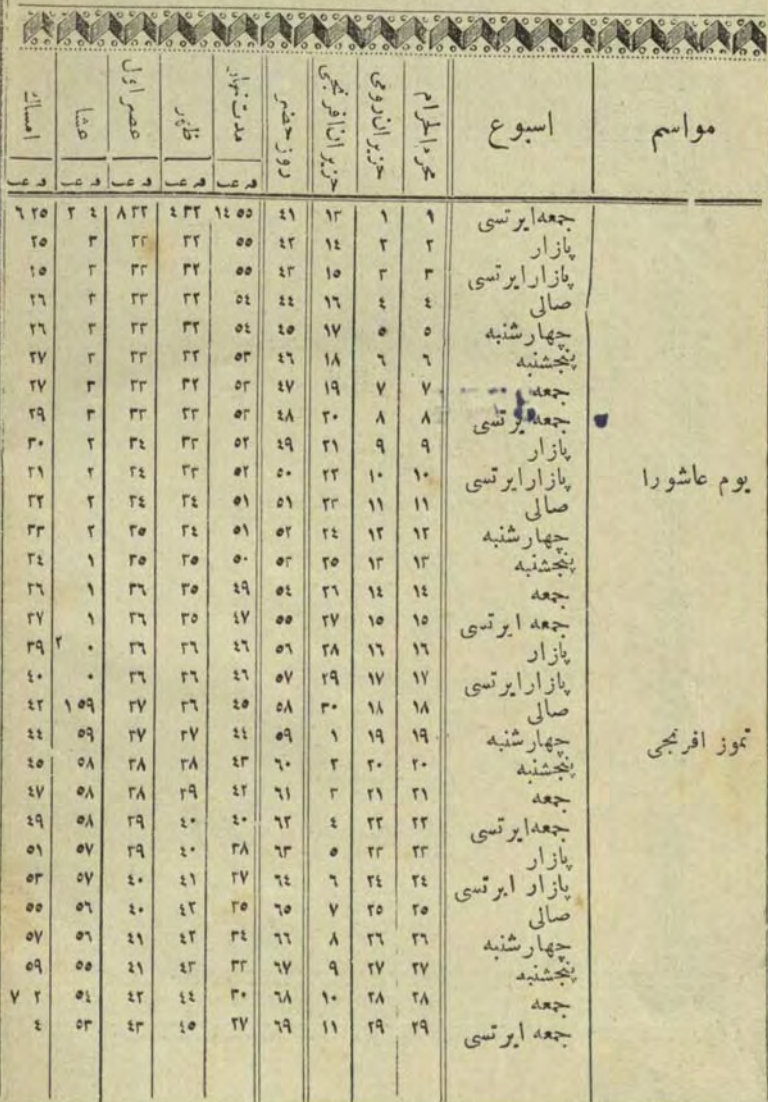 مواسم اسبوع محرم الحرام حزیران رومی حزیران افرنجی روز خضر مدت نهار ظهر عصر اول عشا امساك
جمعه ایرتسی ١ ١ ١٣ ٤١ ٥٥ ١٤ ٣٢ ٤ ٣٢ ٨ ٤ ٢ ٢٥ ٦
پازار ٢ ٢ ١٤ ٤٢ ٥٥ ٣٢ ٣٢ ٣ ٢٥
پازار ایرتسی ٣ ٣ ١٥ ٤٣ ٥٥ ٣٢ ٣٣ ٣ ٢٥
صالی ٤ ٤ ١٦ ٤٤ ٥٤ ٣٢ ٣٣ ٣ ٢٦
چهارشنبه ٥ ٥ ١٧ ٤٥ ٥٤ ٣٢ ٣٣ ٣ ٢٦
پنجشنبه ٦ ٦ ١٨ ٤٦ ٥٣ ٣٢ ٣٣ ٣ ٢٧
جمعه ٧ ٧ ١٩ ٤٧ ٥٣ ٣٢ ٣٣ ٣ ٢٧
جمعه ایرتسی ٨ ٨ ٢٠ ٤٨ ٥٣ ٣٣ ٣٣ ٣ ٢٩
پازار ٩ ٩ ٢١ ٤٩ ٥٢ ٣٣ ٣٤ ٢ ٣٠
یوم عاشورا پازار ایرتسی ١٠ ١٠ ٢٢ ٥٠ ٥٢ ٣٣ ٣٤ ٢ ٣١
صالی ١١ ١١ ٢٣ ٥١ ٥١ ٣٤ ٣٤ ٢ ٣٢
چهارشنبه ١٢ ١٢ ٢٤ ٥٢ ٥١ ٣٤ ٣٥ ٢ ٣٣
پنجشنبه ١٣ ١٣ ٢٥ ٥٣ ٥٠ ٣٥ ٣٥ ١ ٣٤
جمعه ١٤ ١٤ ٢٦ ٥٤ ٤٩ ٣٥ ٣٦ ١ ٣٦
جمعه ایرتسی ١٥ ١٥ ٢٧ ٥٥ ٤٧ ٣٥ ٣٦ ١ ٣٧
پازار ١٦ ١٦ ٢٨ ٥٦ ٤٦ ٣٦ ٣٦ ٠ ٢ ٣٩
پازار ایرتسی ١٧ ١٧ ٢٩ ٥٧ ٤٦ ٣٦ ٣٦ ٠ ٤٠
صالی ١٨ ١٨ ٣٠ ٥٨ ٤٥ ٣٦ ٣٧ ٥٩ ١ ٤٢
تموز افرنجی چهارشنبه ١٩ ١٩ ١ ٥٩ ٤٤ ٣٧ ٣٧ ٥٩ ٤٤
پنجشنبه ٢٠ ٢٠ ٢ ٦٠ ٤٣ ٣٨ ٣٨ ٥٨ ٤٥
جمعه ٢١ ٢١ ٣ ٦١ ٤٢ ٣٩ ٣٨ ٥٨ ٤٧
جمعه ایرتسی ٢٢ ٢٢ ٤ ٦٢ ٤٠ ٤٠ ٣٩ ٥٨ ٤٩
پازار ٢٣ ٢٣ ٥ ٦٣ ٣٨ ٤٠ ٣٩ ٥٧ ٥١
پازار ایرتسی ٢٤ ٢٤ ٦ ٦٤ ٣٧ ٤١ ٤٠ ٥٧ ٥٣
صالی ٢٥ ٢٥ ٧ ٦٥ ٣٥ ٤٢ ٤٠ ٥٦ ٥٥
چهارشنبه ٢٦ ٢٦ ٨ ٦٦ ٣٤ ٤٢ ٤١ ٥٦ ٥٧
پنجشنبه ٢٧ ٢٧ ٩ ٦٧ ٣٣ ٤٣ ٤١ ٥٥ ٥٩
جمعه ٢٨ ٢٨ ١٠ ٦٨ ٣٠ ٤٤ ٤٢ ٥٤ ٢ ٧
جمعه ایرتسی ٢٩ ٢٩ ١١ ٦٩ ٢٧ ٤٥ ٤٣ ٥٣ ٤